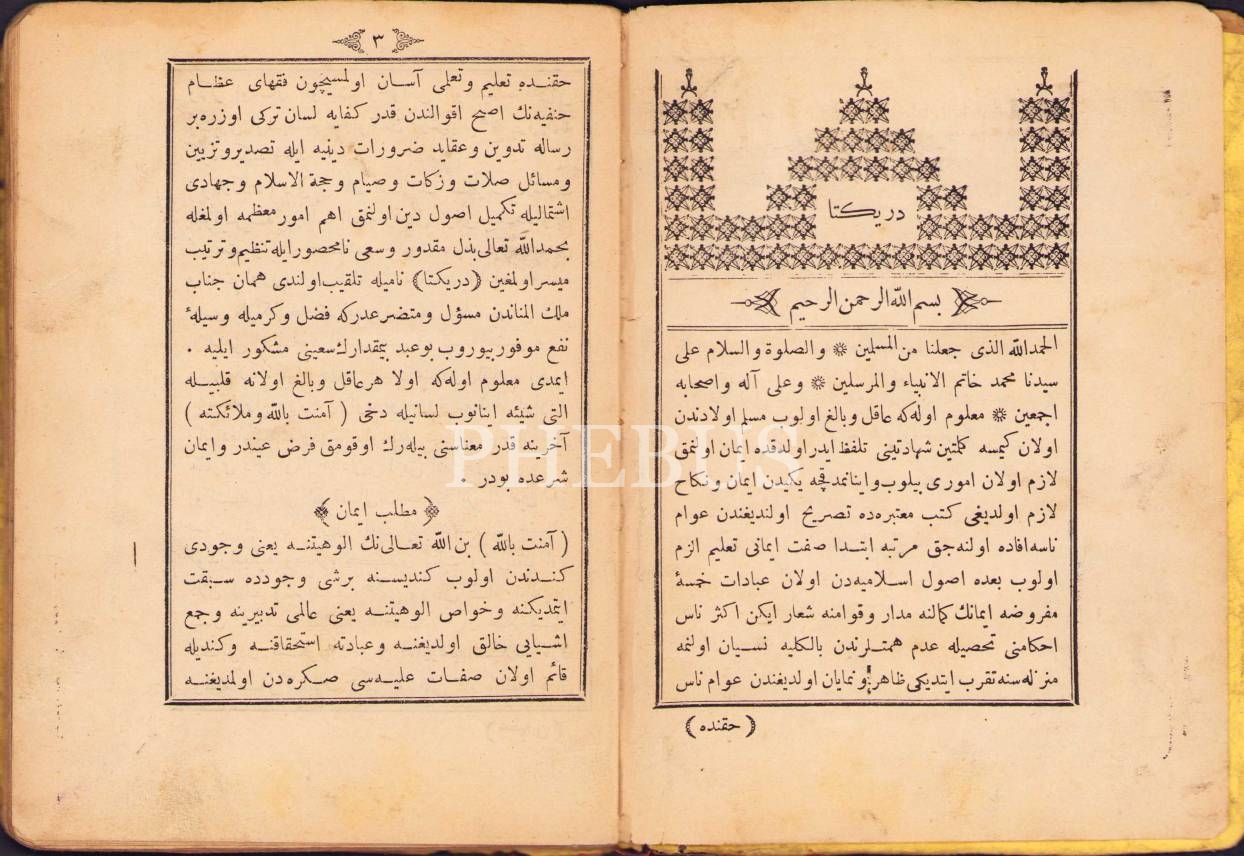 در يكتا
بسم الله الرحمن الرحيم
الحمدالله الذى جعلنا من المسلمين ❋ والصلوة والسلام على
سيدنا محمد خاتم الانبياء والمرسلين ❋ وعلى آله واصحابه
اجمعين ❋ معلوم اوله كه عاقل وبالغ اولوب مسلم اولادندن
اولان كيمسه كلمتين شهادتينى تلفظ ايدر اولدقده ايمان اولنمق
لازم اولان امورى بيلوب واينانمدقچه يكيدن ايمان ونكاح
لازم اولديغى كتب معتبره ده تصريح اولنديغندن عوام
ناسه افاده اولنه جق مرتبه ابتدا صفت ايمانى تعليم الزم
اولوب بعده اصول اسلاميه دن اولان عبادات خمسۀ
مفروضه ايمانك كمالنه مدار وقوامنه شعار ايكن اكثر ناس
احكامنى تحصيله عدم همتلرندن بالكليه نسيان اولنمه
منزله سنه تقرب ايتديكى ظاهر ونمايان اولديغندن عوام ناس
(حقنده)
٣
حقنده تعليم وتعلمى آسان اولمسيچون فقهاى عظام
حنفيه نك اصح اقوالندن قدر كفايه لسان تركى اوزره بر
رساله تدوين وعقايد ضرورات دينيه ايله تصدير وتزيين
ومسائل صلات وزكات وصيام وحجة الاسلام وجهادى
اشتماليله تكميل اصول دين اولنمق اهم امور معظمه اولمغله
بحمدالله تعالى بذل مقدور وسعى نامحصور ايله تنظيم وترتيب
ميسر اولمغين (در يكتا) ناميله تلقيب اولندى همان جناب
ملك المناندن مسؤل ومتضرعدركه فضل وكرميله وسيلۀ
نفع موفور بيوروب بو عبد بيمقدارك سعينى مشكور ايليه .
ايمدى معلوم اوله كه اولا هر عاقل وبالغ اولانه قلبيله
التى شيئه اينانوب لسانيله دخى ( آمنت بالله وملائكته )
آخرينه قدر معناسنى بيله رك اوقومق فرض عيندر وايمان
شرعده بودر .
مطلب ايمان
( آمنت بالله ) بن الله تعالى نك الوهيتنه يعنى وجودى
كندندن اولوب كنديسنه برشى وجودده سبقت
ايتمديكنه وخواص الوهيتنه يعنى عالمى تدبيرينه وجمع
اشيايى خالق اولديغنه وعبادته استحقاقنه وكنديله
قائم اولان صفات عليه سى صكره دن اولمديغنه
PHEBUS